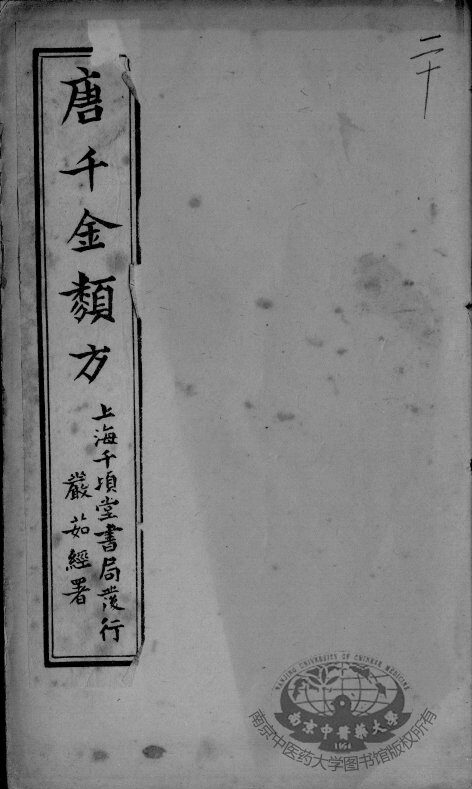 二十
唐千金類方
上海千頃堂書局發行
嚴茹經署
NANJING UNIVERSITY OF CHINESE MEDICINE
南京中醫藥大學
1954
南京中医药大学图书馆版权所有